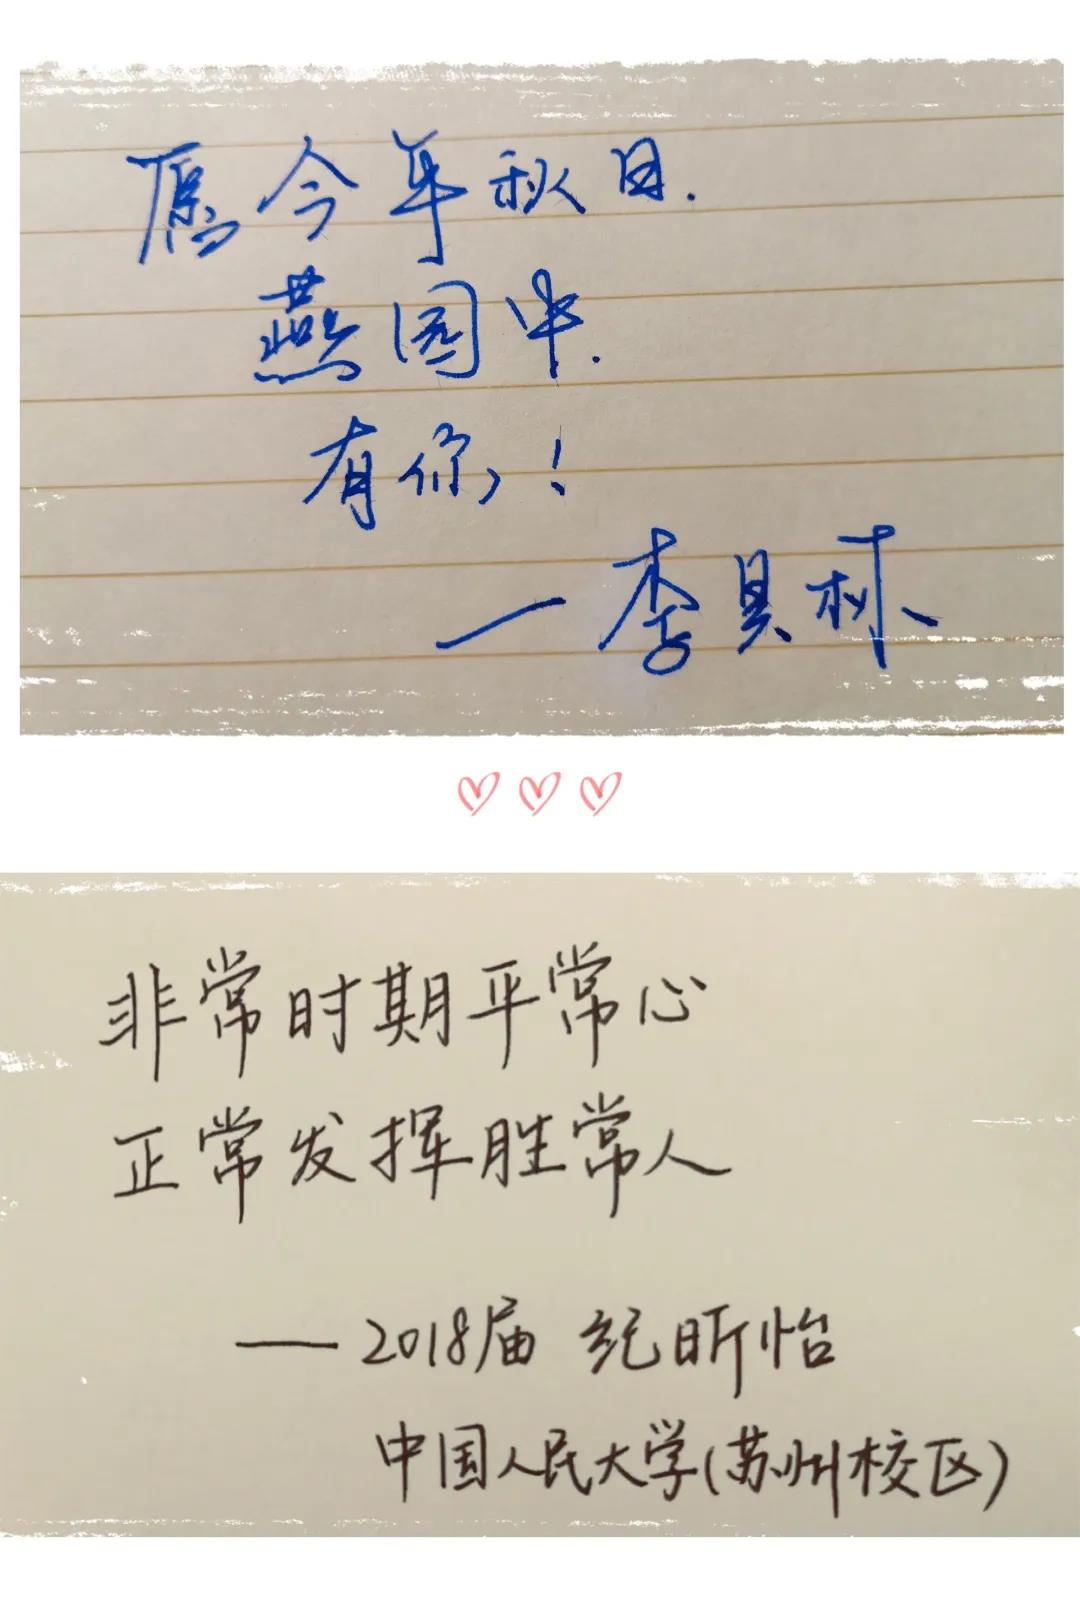 愿今年秋日.
燕园中.
有你,!
—李昊林
非常时期平常心
正常发挥胜常人
——2018届 纪昕怡
中国人民大学(苏州校区)